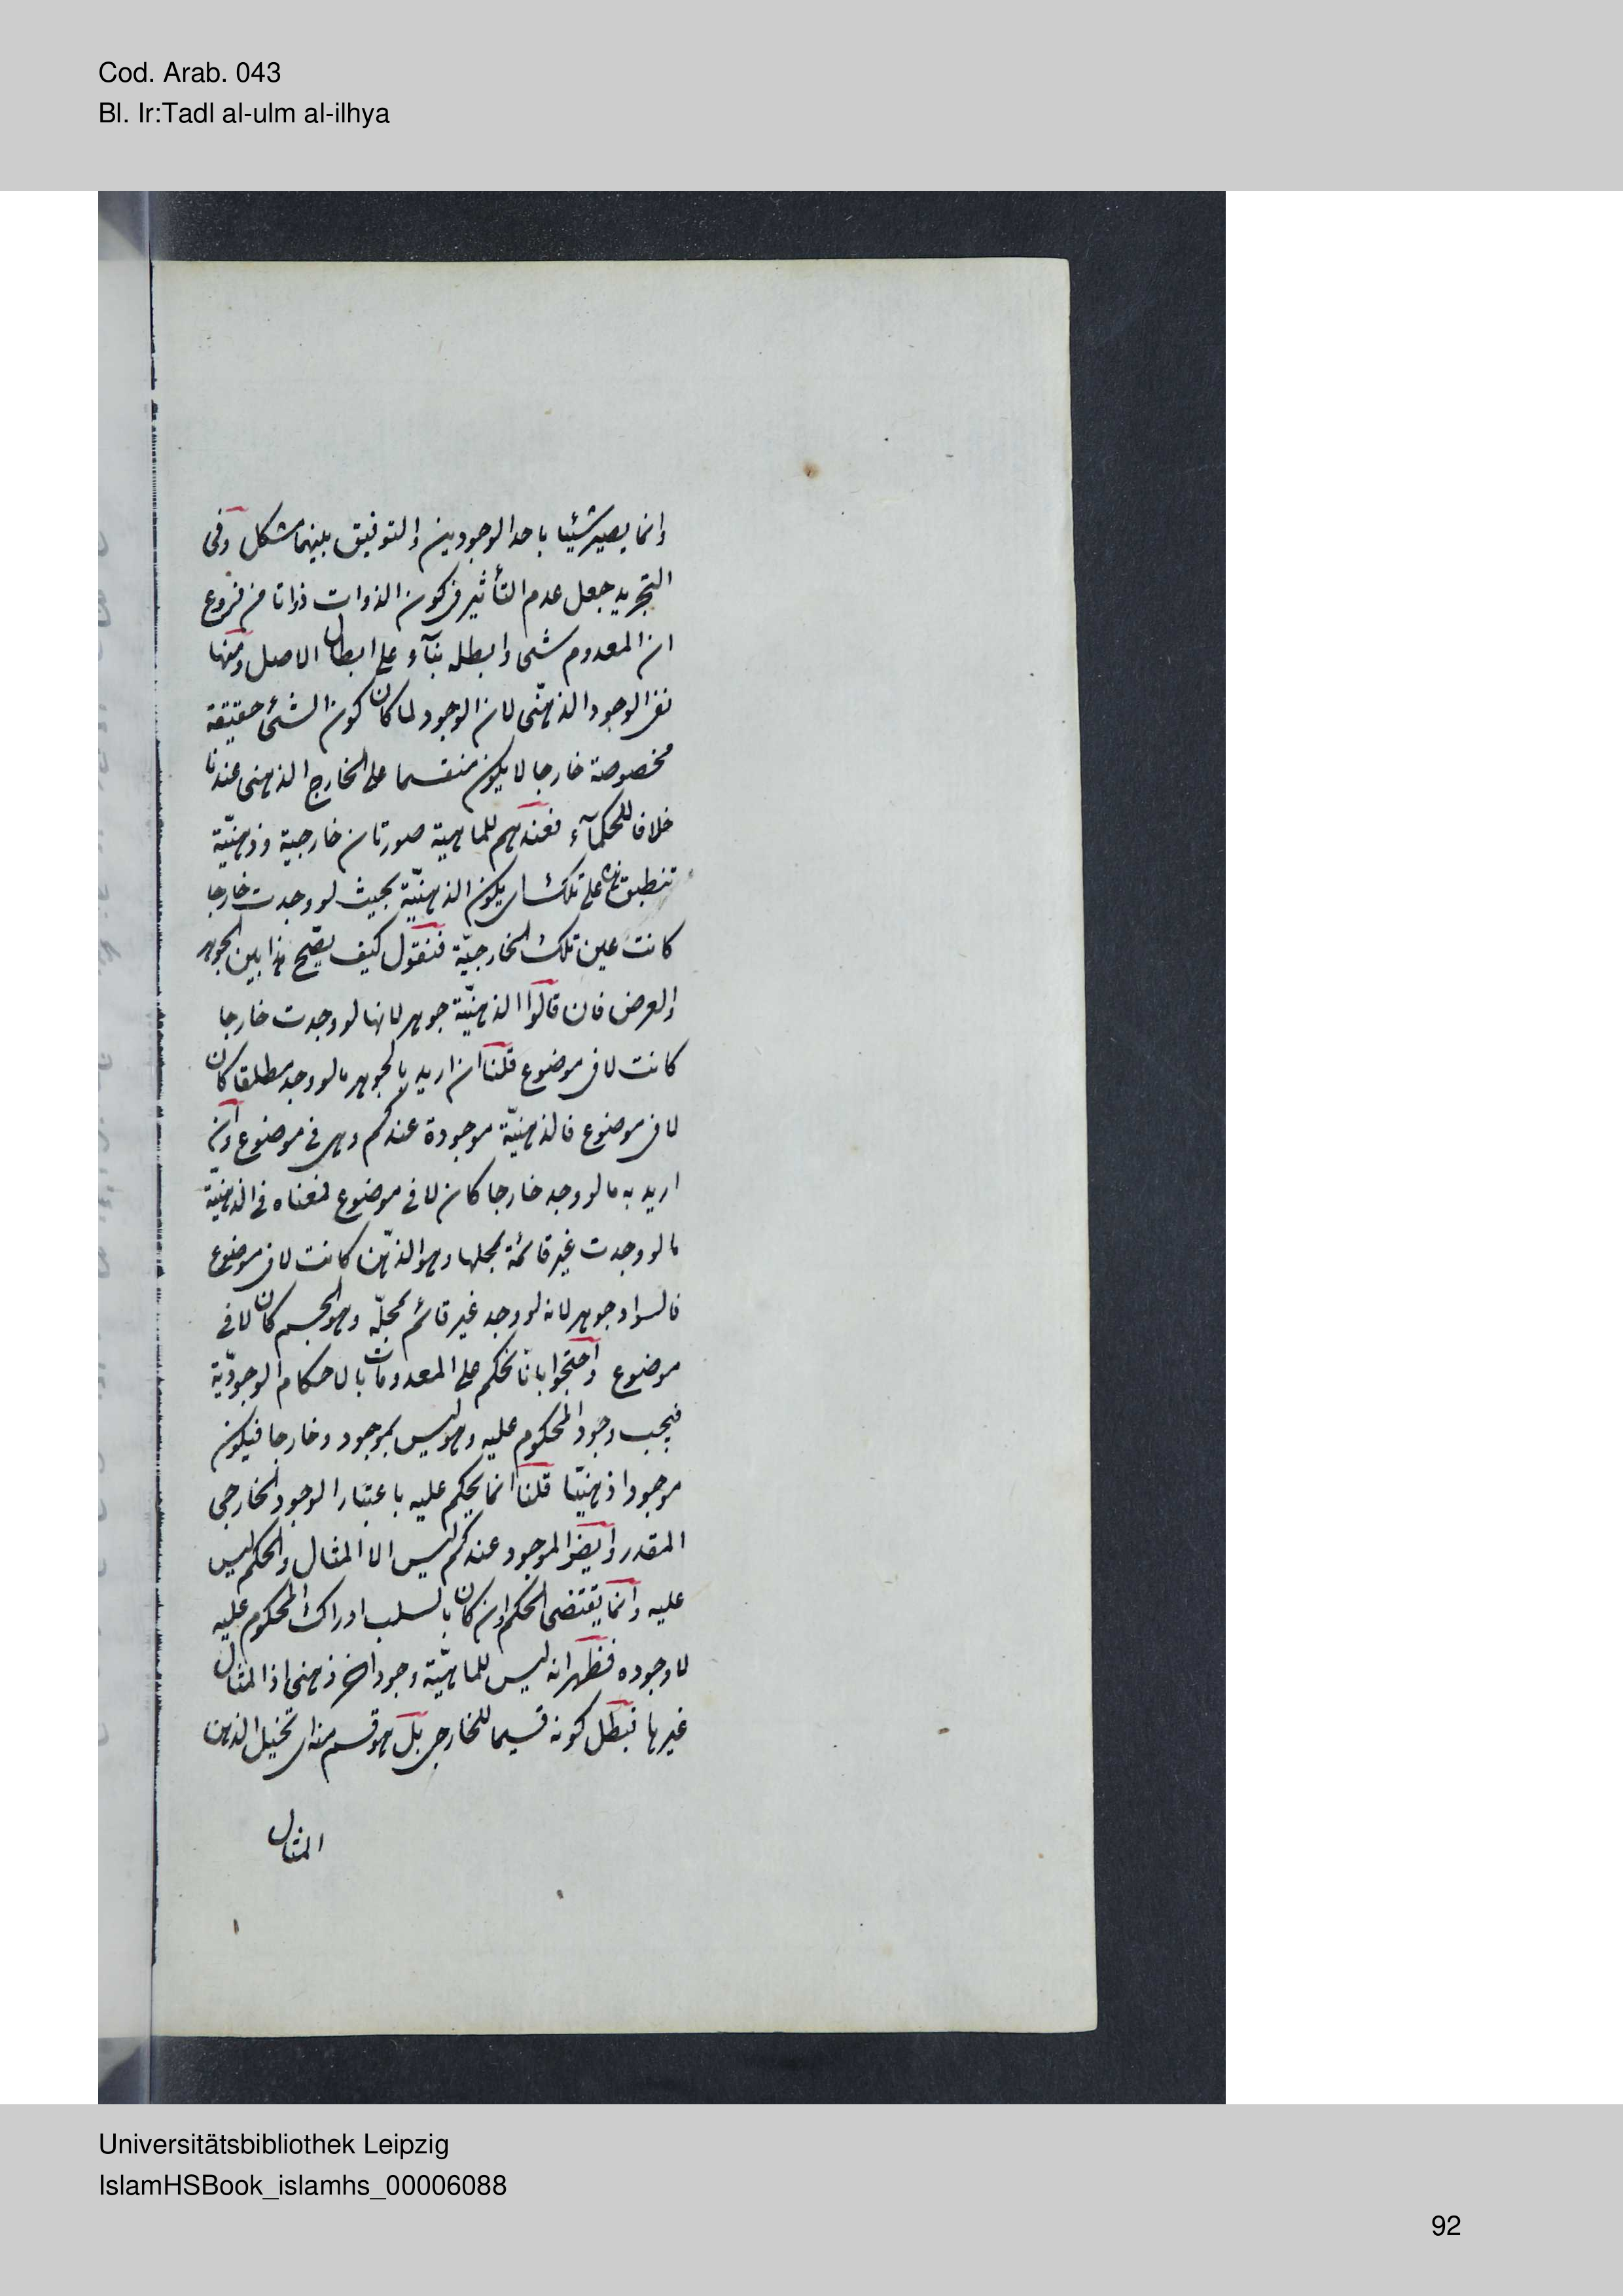 Cod. Arab. 043
Bl. Ir:Tadl al-ulm al-ilhya
وانما يصير شيئا باحد الوجودين والتوفيق بينهما مشكل وفى
التجريد جعل عدم التأثير فى كون الذوات ذواتا من فروع
ان المعدوم شىء وابطله بنآء على ابطال الاصل ومنها
نفى الوجود الذهنّى لان الوجود لما كان كون الشئ حقيقة
مخصوصة خارجا لا يكون منقسما على الخارج الذهنى عندنا
خلافا للحكمآء فعندهم للماهية صورتان خارجية وذهنيّة
تنطبق هذه على تلك اى يكون الذهنيّة بحيث لو وجدت خارجا
كانت عين تلك الخارجيّة فنقول كيف يصّح هذا بين الجوهر
والعرض فان قالوا الذهنيّة جوهر لانها لو وجدت خارجا
كانت لا فى موضوع قلنا ان اريد بالجوهر ما لو وجد مطلقا كان
لا فى موضوع فالذهنيّة موجودة عندكم وهى فى موضوع وان
اريد به ما لو وجد خارجا كان لا فى موضوع فمعناه فى الذهنيّة
ما لو وجدت غير قائمة بمحلها وهو الذهّن كانت لا فى موضوع
فالسواد جوهر لانه لو وجد غير قائم بمحلّه وهو الجسم كان لا فى
موضوع واحتجوا بانا نحكم على المعدومات بالاحكام الوجوديّة
فيجب وجود المحكوم عليه وهو ليس بموجود وخارجا فيكون
موجودا ذهنيّا قلنا انما يحكم عليه باعتبار الوجود الخارجى
المقدر وايضا الموجود عندكم ليس الا المثال والحكم ليس
عليه وانما يقتضى الحكم وان كان بالسلب ادراك المحكوم عليه
لا وجوده فظهر انه ليس للماهيّة وجود اخر ذهنى اذ المثال
غيرها فبطل كونه قسيما للخارجى بل هو قسم منه اى تخيل الذهن
المثال
Universitätsbibliothek Leipzig
IslamHSBook_islamhs_00006088
92